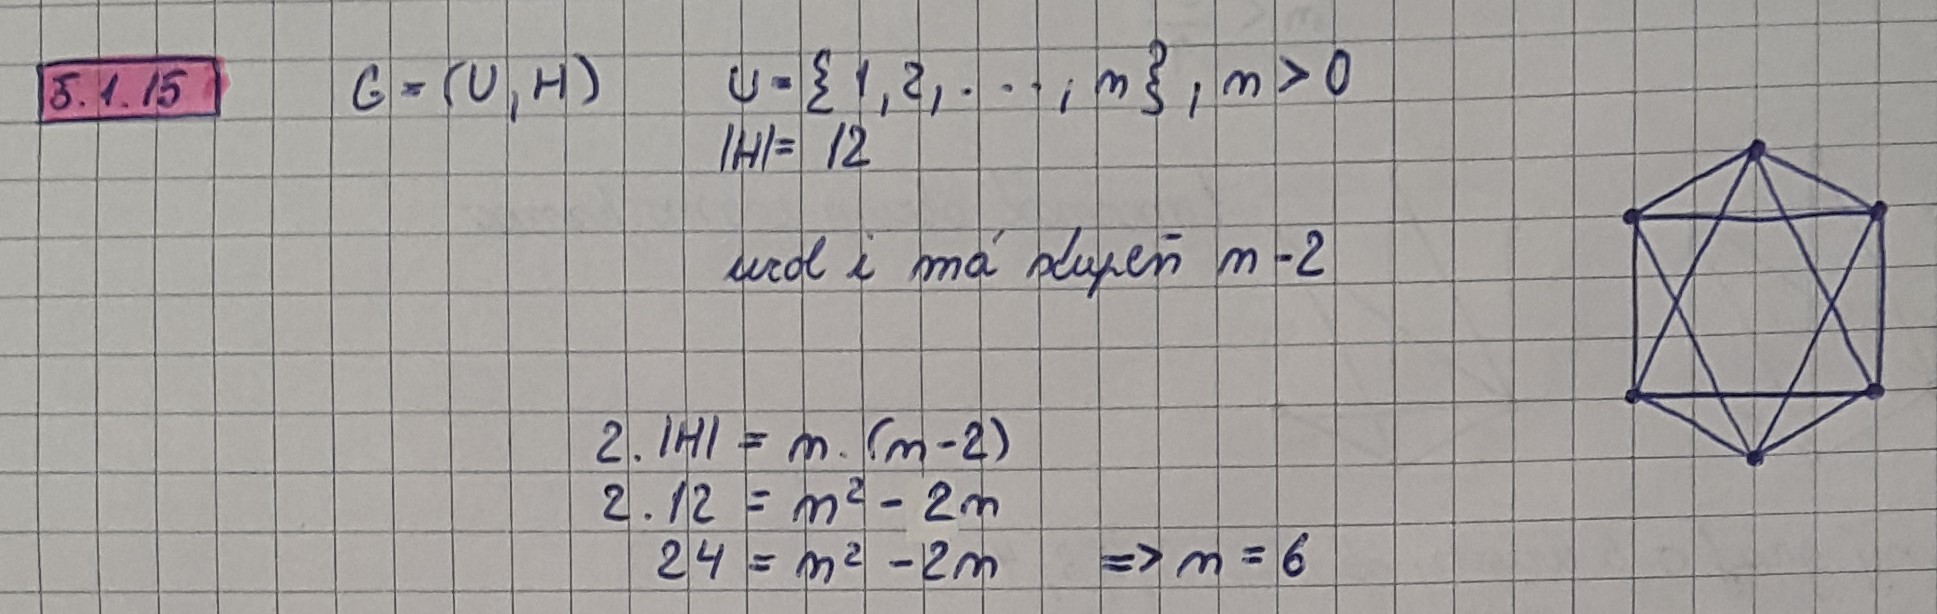 5.1.15 G = (U, H) U = {1, 2, . . . , n}, n > 0
|H| = 12
uzol i má stupeň n - 2
2 . |H| = n . (n - 2)
2 . 12 = n² - 2n
24 = n² - 2n => n = 6